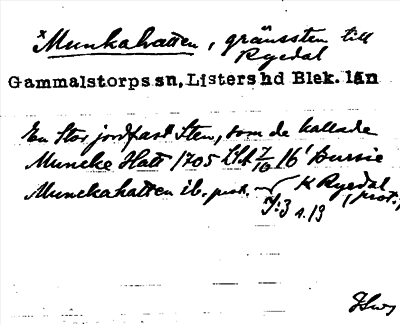 x Munkahatten, gränssten till
Ryedal
Gammalstorps sn, Listers hd Blek. län
En Stor jordfast Sten, som de kallade
Muncke Hatt 1705 16
Munckahatten ib. prot. K Ryedal
(prot.)
s. 19